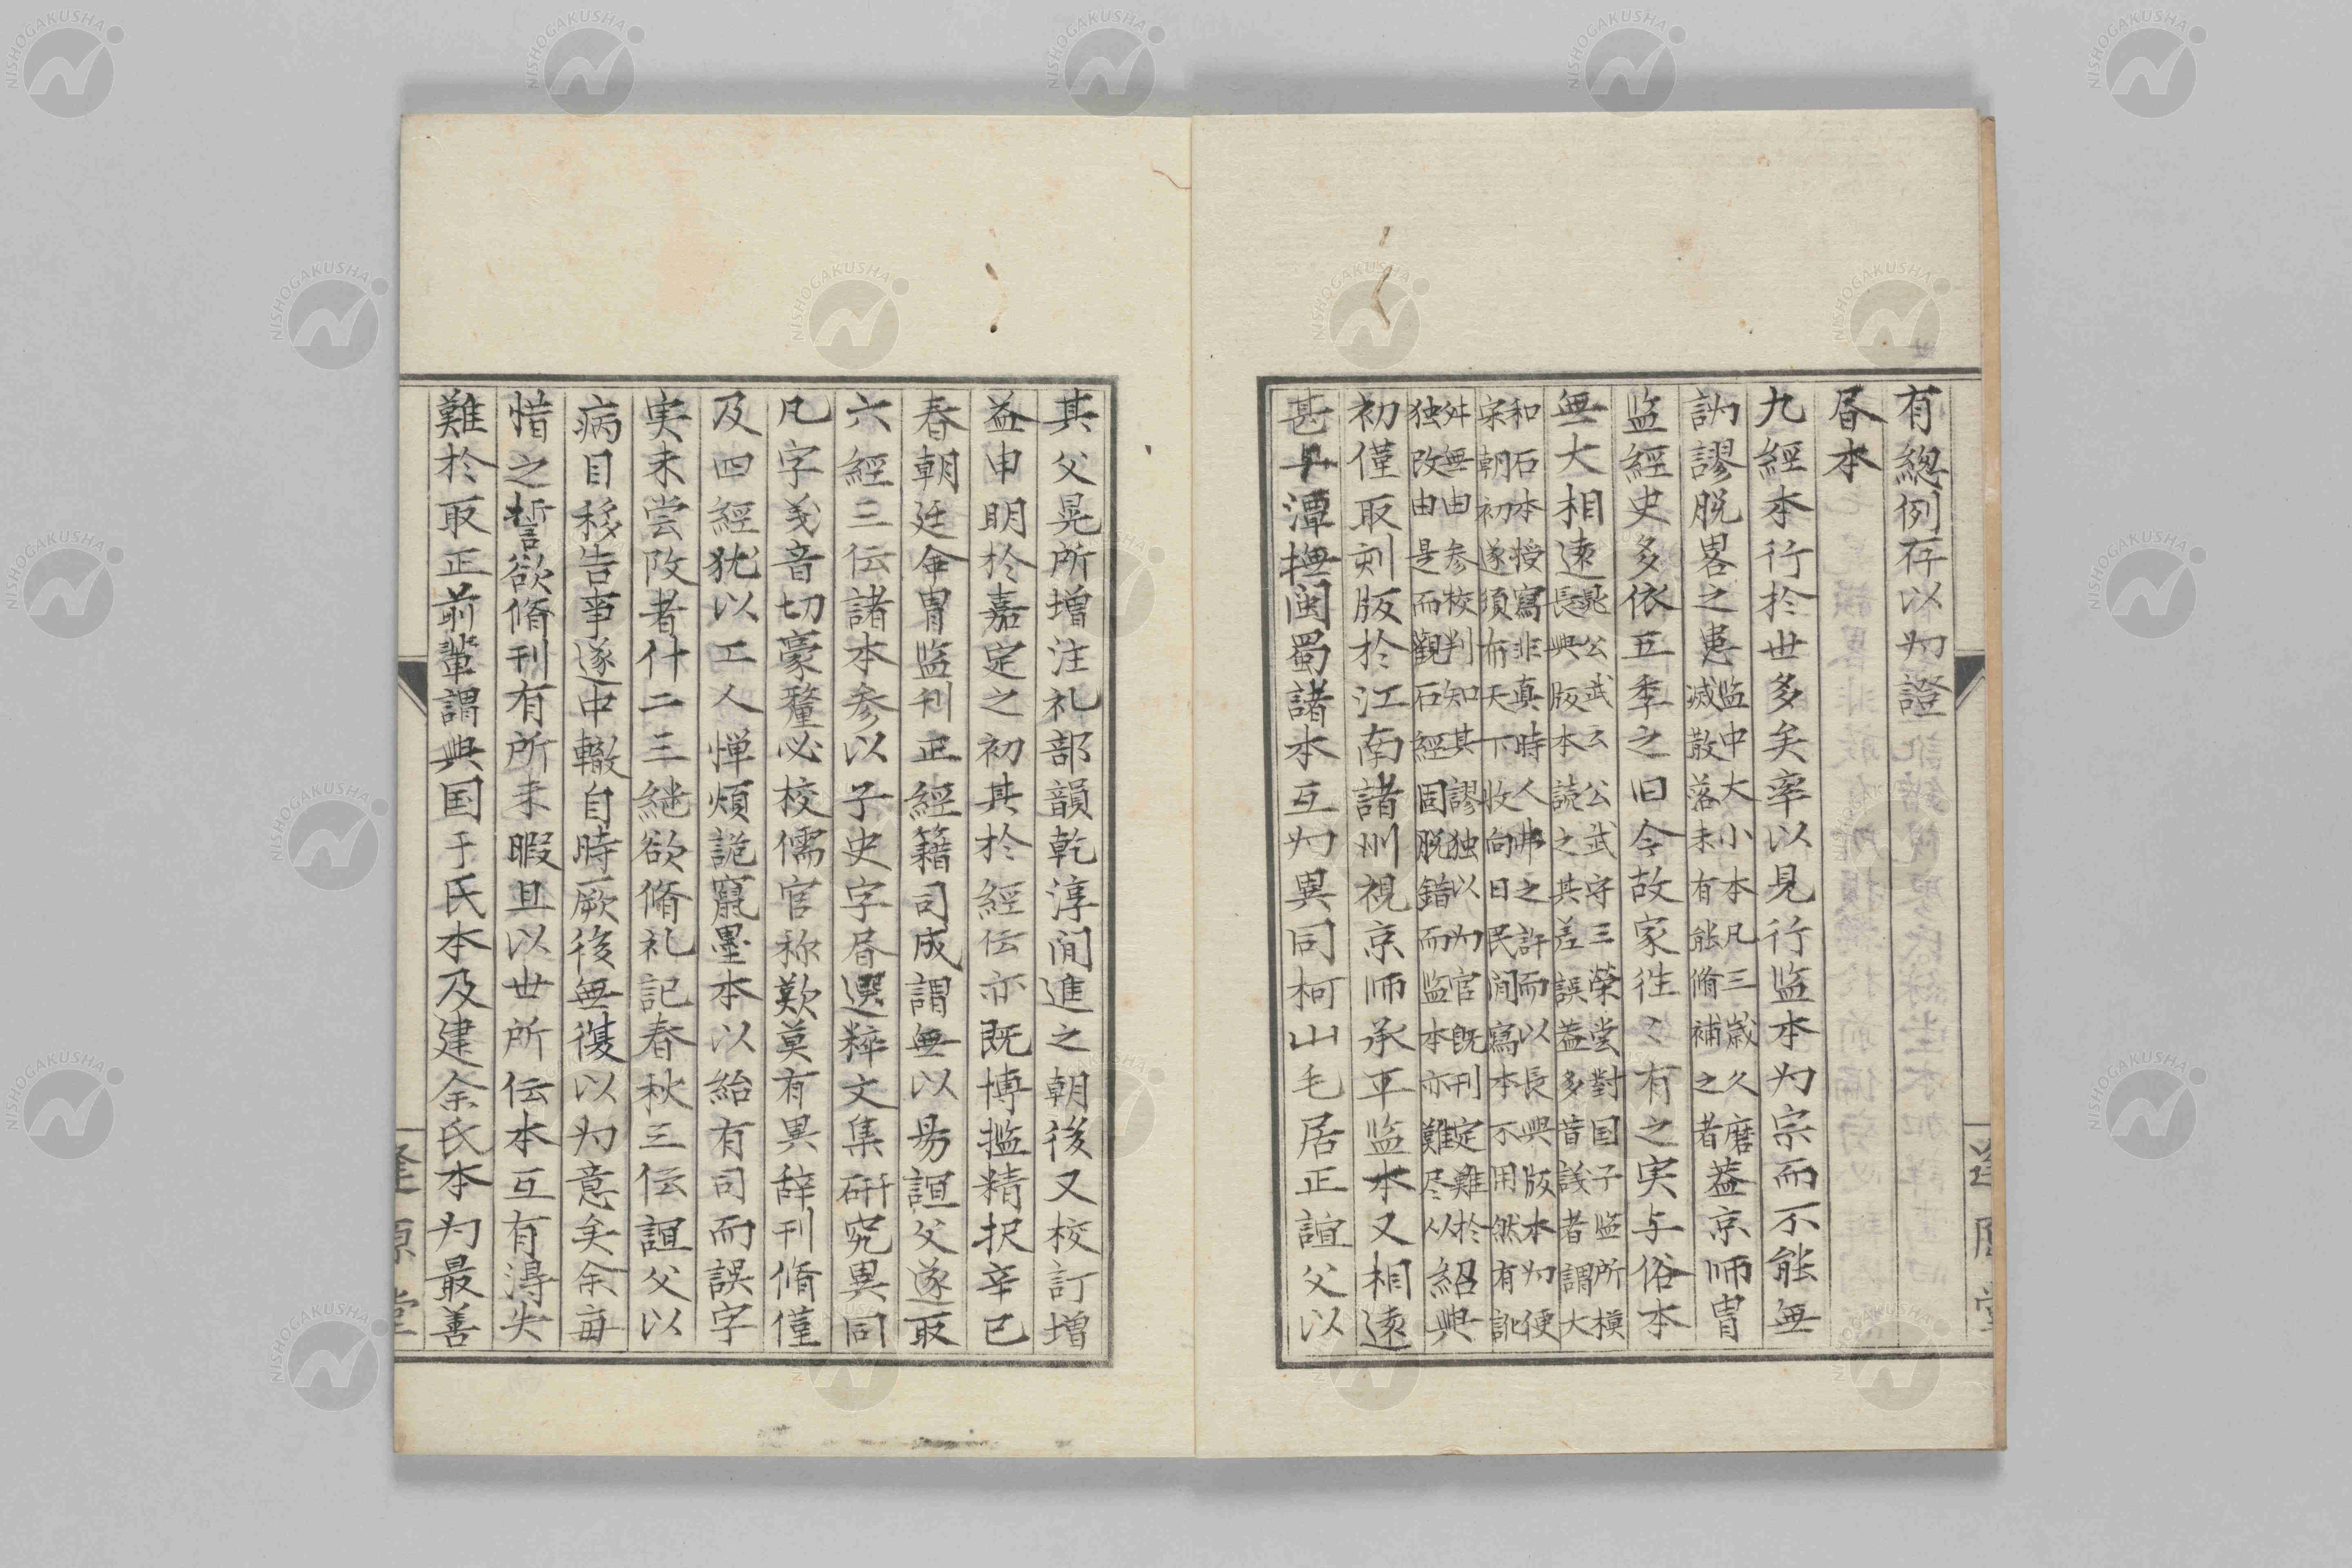 有總例存以为證
㫺本
九經本行於世多矣率以見行监本为宗而不能無
訛謬脱畧之患监中大小本凡三歳久磨
滅散落未有能脩補之者葢京师胄
监經史多依五季之旧今故家徃〻有之実与俗本
無大相遠晁公武云公武守三榮尝對国子监所模
長興版本読之其差誤葢多昔議者謂大
和石本授寫非真時人弗之許而以長興版本为便
宋朝初遂須布天下收向日民间寫本不用然有訛
舛無由参校判知其謬独以为官既刊定難於
独改由是而觀石經固脱錯而监本亦難尽从紹興
初僅取刻版於江南諸州視京师承平监本又相遠
甚与潭撫闽蜀諸本互为異同柯山毛居正誼父以
其父晃所增注礼部韻乾淳间進之朝後又校訂增
益申明於嘉定之初其於經伝亦既博擥精択辛已
春朝廷命胄监刊正經籍司成謂無以易誼父遂取
六經三伝諸本参以子史字㫺選粹文集研究異同
凡字义音切豪釐必校儒官称歎莫有異辞刊脩僅
及四經犹以工人惮煩詭竄墨本以紿有司而誤字
実未尝改者什二三継欲脩礼記春秋三伝誼父以
病目移告事遂中輟自時厥後無復以为意矣余每
惜之誓欲脩刊有所未暇且以世所伝本互有得失
難於取正前輩謂興国于氏本及建余氏本为最善